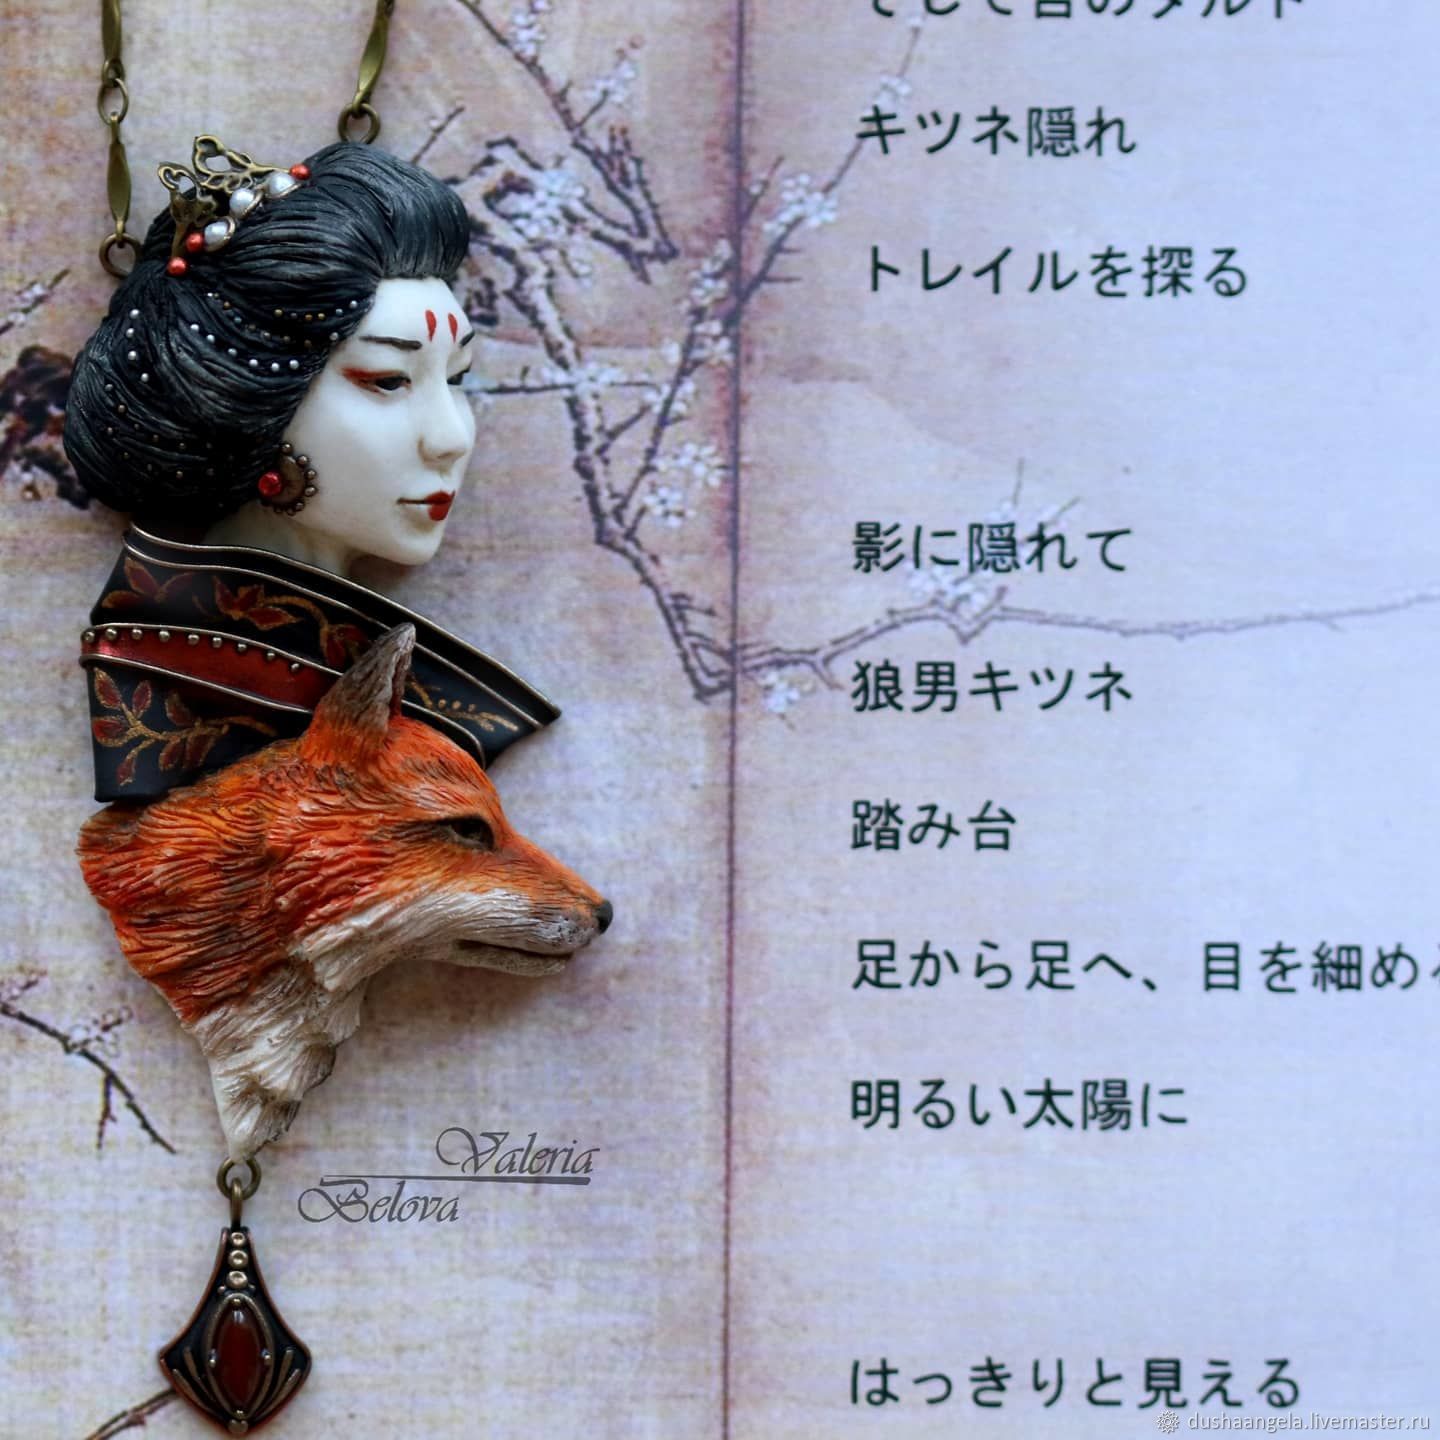 キツネ隠れ
トレイルを探る
影に隠れて
狼男キツネ
踏み台
足から足へ、目を細める
明るい太陽に
はっきりと見える
Valeria
Belova
dushaangela.livemaster.ru